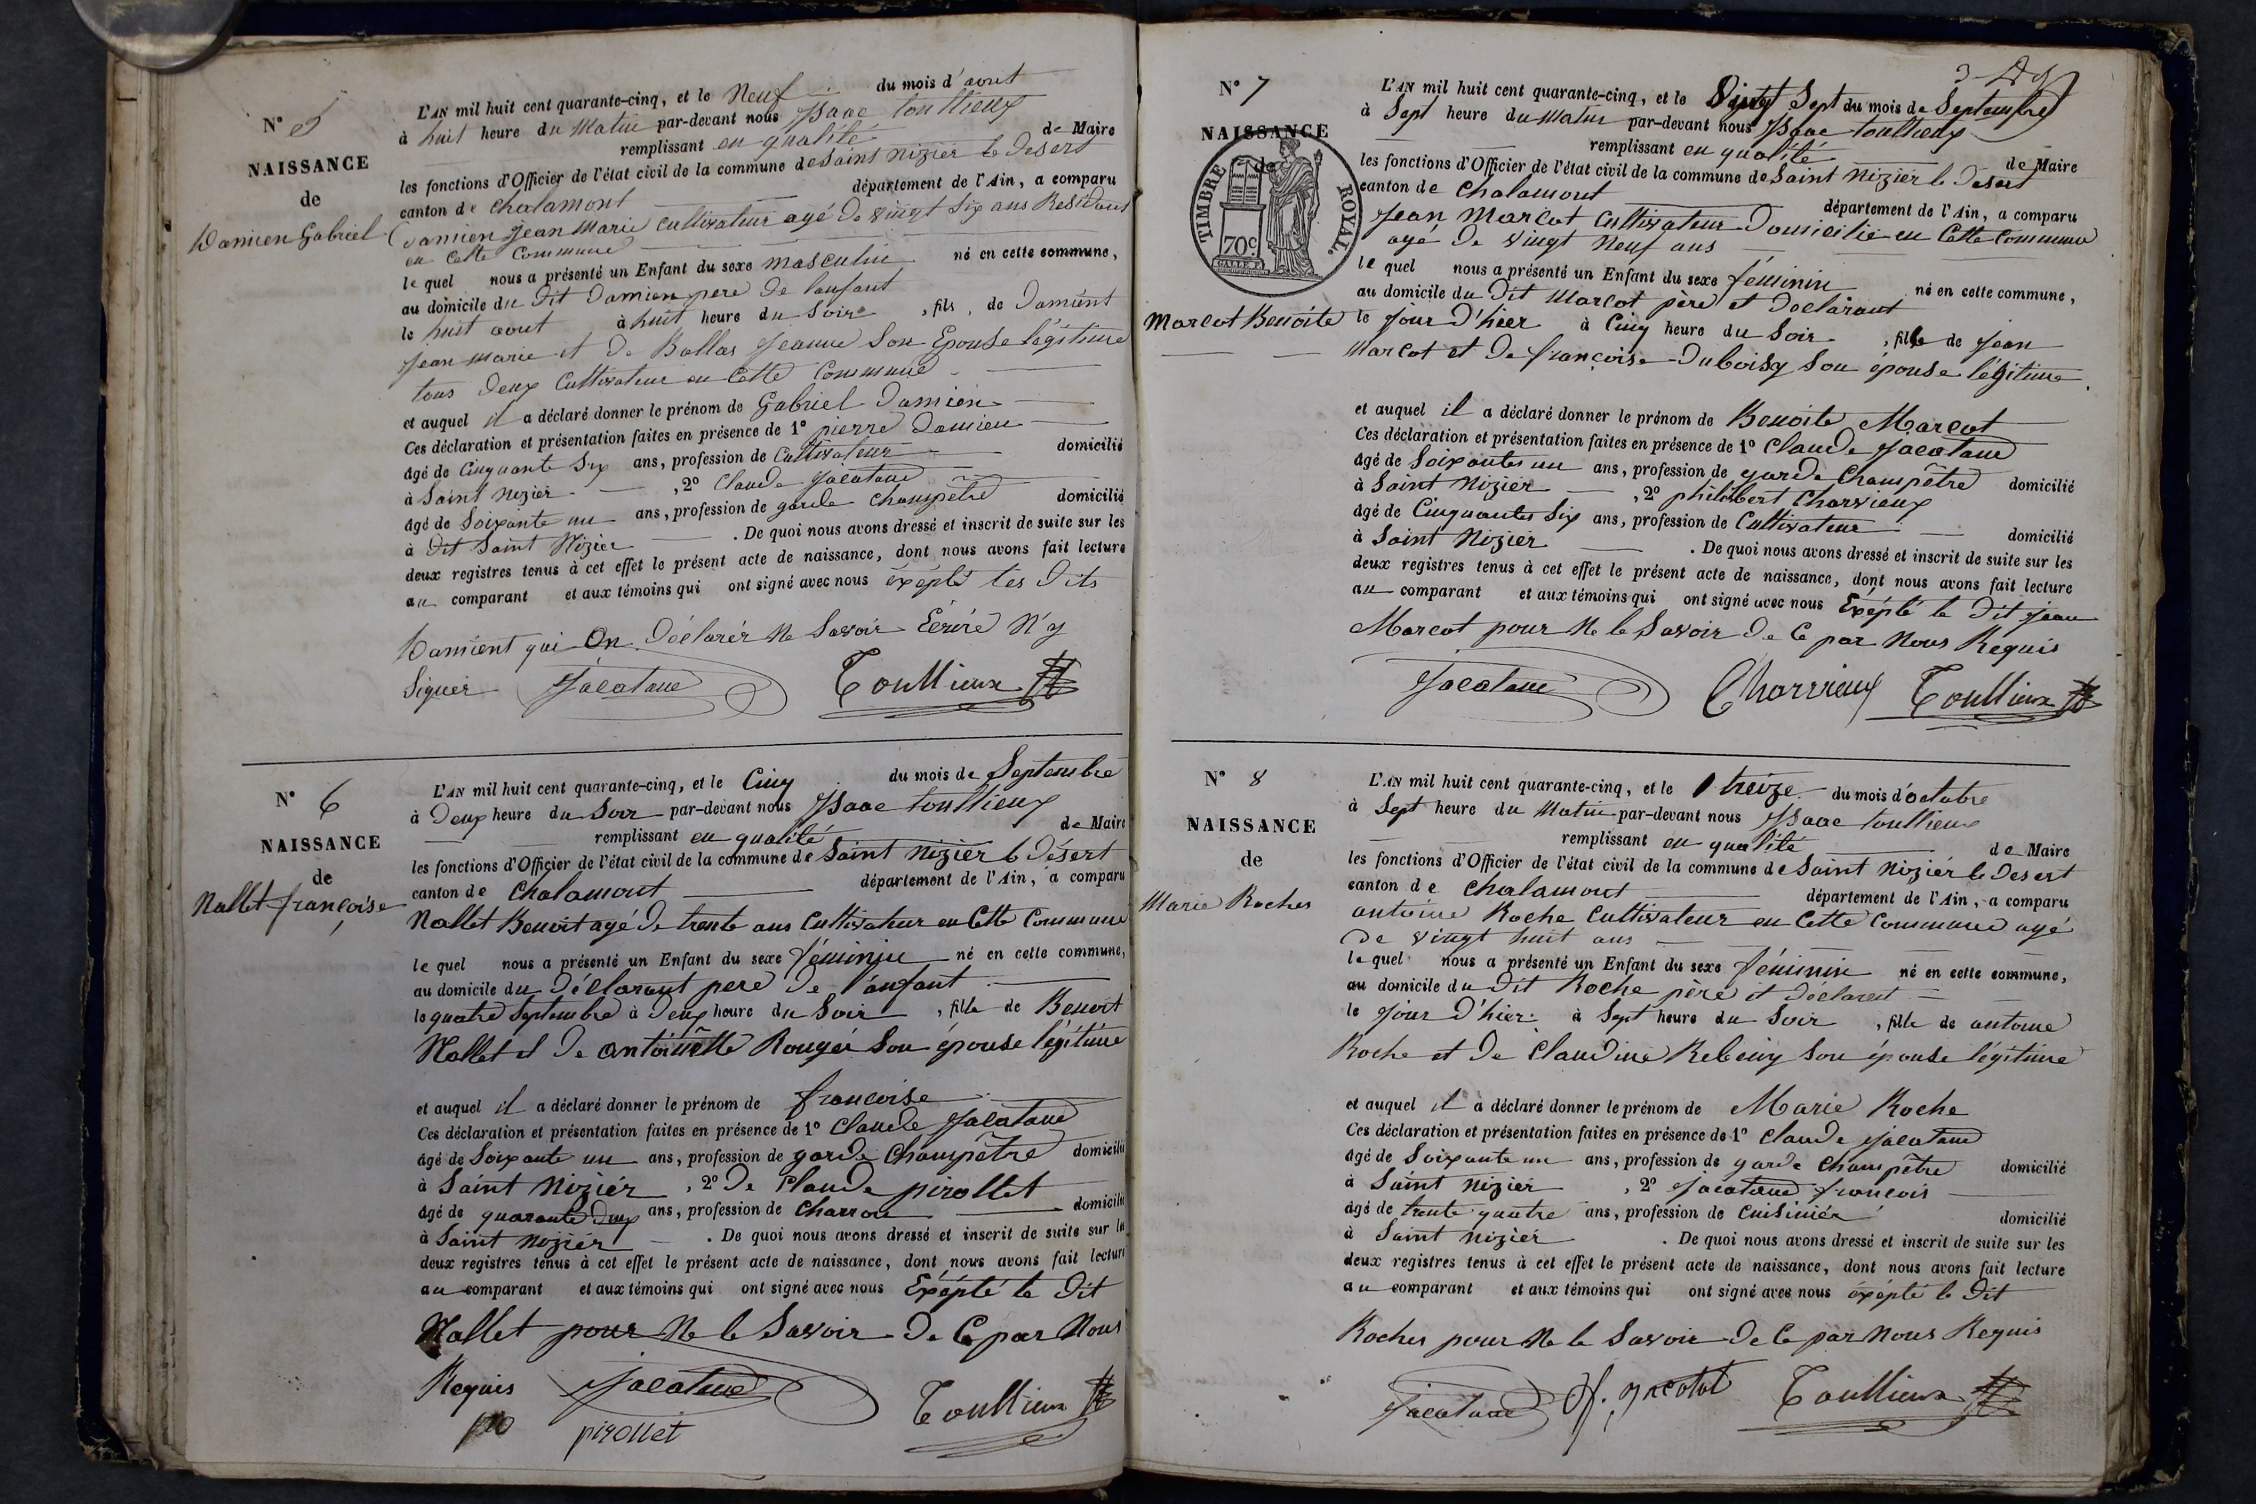 N° 5
NAISSANCE
de
Damien Gabriel
L'AN mil huit cent quarante-cinq, et le Neuf du mois d'aout
à huit heure du Matin par-devant nous Isaac toullieux
remplissant en qualité de Maire
les fonctions d'Officier de l'état civil de la commune de Saint nizier le Desert
canton de chalamont département de l'Ain, a comparu
Damien Jean Marie cultivateur agé De vingt Six ans Residant
en cette Commune
le quel nous a présenté un Enfant du sexe masculin né en cette commune,
au domicile du Dit Damien pere De l'enfant
le huit aout à huit heure du Soir, fils, de Damient
Jean marie et De Ballas Jeanne Son Epouse légitime
tous Deux Cultivateur en Cette Commune
et auquel il a déclaré donner le prénom de Gabriel Damien
Ces déclaration et présentation faites en présence de 1° pierre Damien
âgé de Cinquante Six ans, profession de Cultivateur domicilié
à Saint Nizier, 2° Claude Jacatane
âgé de Soixante un ans, profession de garde Champêtre domicilié
à Dit Saint Nizier. De quoi nous avons dressé et inscrit de suite sur les
deux registres tenus à cet effet le présent acte de naissance, dont nous avons fait lecture
au comparant et aux témoins qui ont signé avec nous éxépté les Dits
Damient qui On Déclarér Ne Savoir Ecrire N'y
Signer Jacatane Toullieux
N° 6
NAISSANCE
de
Nallet françoise
L'AN mil huit cent quarante-cinq, et le Cinq du mois de Septembre
à Deux heure du Soir par-devant nous Isaac toullieux
remplissant en qualité de Maire
les fonctions d'Officier de l'état civil de la commune de Saint nizier le Désert
canton de Chalamont département de l'Ain, a comparu
Nallet Benoit agé De trente ans Cultivateur en Cette Commune
le quel nous a présenté un Enfant du sexe féminin né en cette commune,
au domicile du Déclarant pere De l'anfant
le quatre Septembre à Deux heure du Soir, fille de Benoit
Nallet et De antoinette Rougér Son épouse légitime
et auquel il a déclaré donner le prénom de francoise
Ces déclaration et présentation faites en présence de 1° Claude Jacatane
âgé de Soixante un ans, profession de garde Champêtre domicilié
à Saint Nizier, 2° De Claude pirollet
âgé de quarante Deux ans, profession de Charron domicilié
à Saint nizier. De quoi nous avons dressé et inscrit de suite sur les
deux registres tenus à cet effet le présent acte de naissance, dont nous avons fait lecture
au comparant et aux témoins qui ont signé avec nous Exépté le Dit
Nallet pour Ne le Savoir De Ce par Nous
Requis Jacatane Toullieux
pirollet
N° 7
NAISSANCE
de
TIMBRE ROYAL.
70c.
Marcot Benoite
L'AN mil huit cent quarante-cinq, et le Vingt Sept du mois de Septembre
à Sept heure du Matin par-devant nous Isaac toullieux
remplissant en qualité de Maire
les fonctions d'Officier de l'état civil de la commune de Saint Nizier le Desert
canton de Chalamont département de l'Ain, a comparu
Jean Marcot Cultivateur Domicilié en Cette Commune
agé De vingt Neuf ans
le quel nous a présenté un Enfant du sexe féminin né en cette commune,
au domicile du Dit Marcot père et Declarant
le Jour D'hier à Cinq heure du Soir, fille de Jean
Marcot et De françoise Duboisy Son épouse légitime
et auquel il a déclaré donner le prénom de Benoite Marcot
Ces déclaration et présentation faites en présence de 1° Claude Jacatane
âgé de Soixante un ans, profession de garde Champêtre domicilié
à Saint Nizier, 2° philibert Charvieux
âgé de Cinquante Six ans, profession de Cultivateur domicilié
à Saint Nizier. De quoi nous avons dressé et inscrit de suite sur les
deux registres tenus à cet effet le présent acte de naissance, dont nous avons fait lecture
au comparant et aux témoins qui ont signé avec nous Exépté le Dit Jean
Marcot pour Ne le Savoir De Ce par Nous Requis
Jacatane Charvieux Toullieux
N° 8
NAISSANCE
de
Marie Roches
L'AN mil huit cent quarante-cinq, et le treize du mois d'octobre
à Sept heure du Matin par-devant nous Isaac toullieux
remplissant en qualité de Maire
les fonctions d'Officier de l'état civil de la commune de Saint Nizier le Desert
canton de Chalamont département de l'Ain, a comparu
antoine Roche Cultivateur en Cette Commune agé
De vingt huit ans
le quel nous a présenté un Enfant du sexe féminin né en cette commune,
au domicile du Dit Roche père et Déclarent
le Jour D'hier à Sept heure du Soir, fille de antoine
Roche et De Claudine Rebeing Son épouse légitime
et auquel il a déclaré donner le prénom de Marie Roche
Ces déclaration et présentation faites en présence de 1° Claude Jacatane
âgé de Soixante un ans, profession de garde Champêtre domicilié
à Saint Nizier, 2° Jacatane françois
âgé de trente quatre ans, profession de Cuisiniér domicilié
à Saint Nizier. De quoi nous avons dressé et inscrit de suite sur les
deux registres tenus à cet effet le présent acte de naissance, dont nous avons fait lecture
au comparant et aux témoins qui ont signé avec nous éxépté le Dit
Roches pour Ne le Savoir De Ce par Nous Requis
Jacatane Toullieux